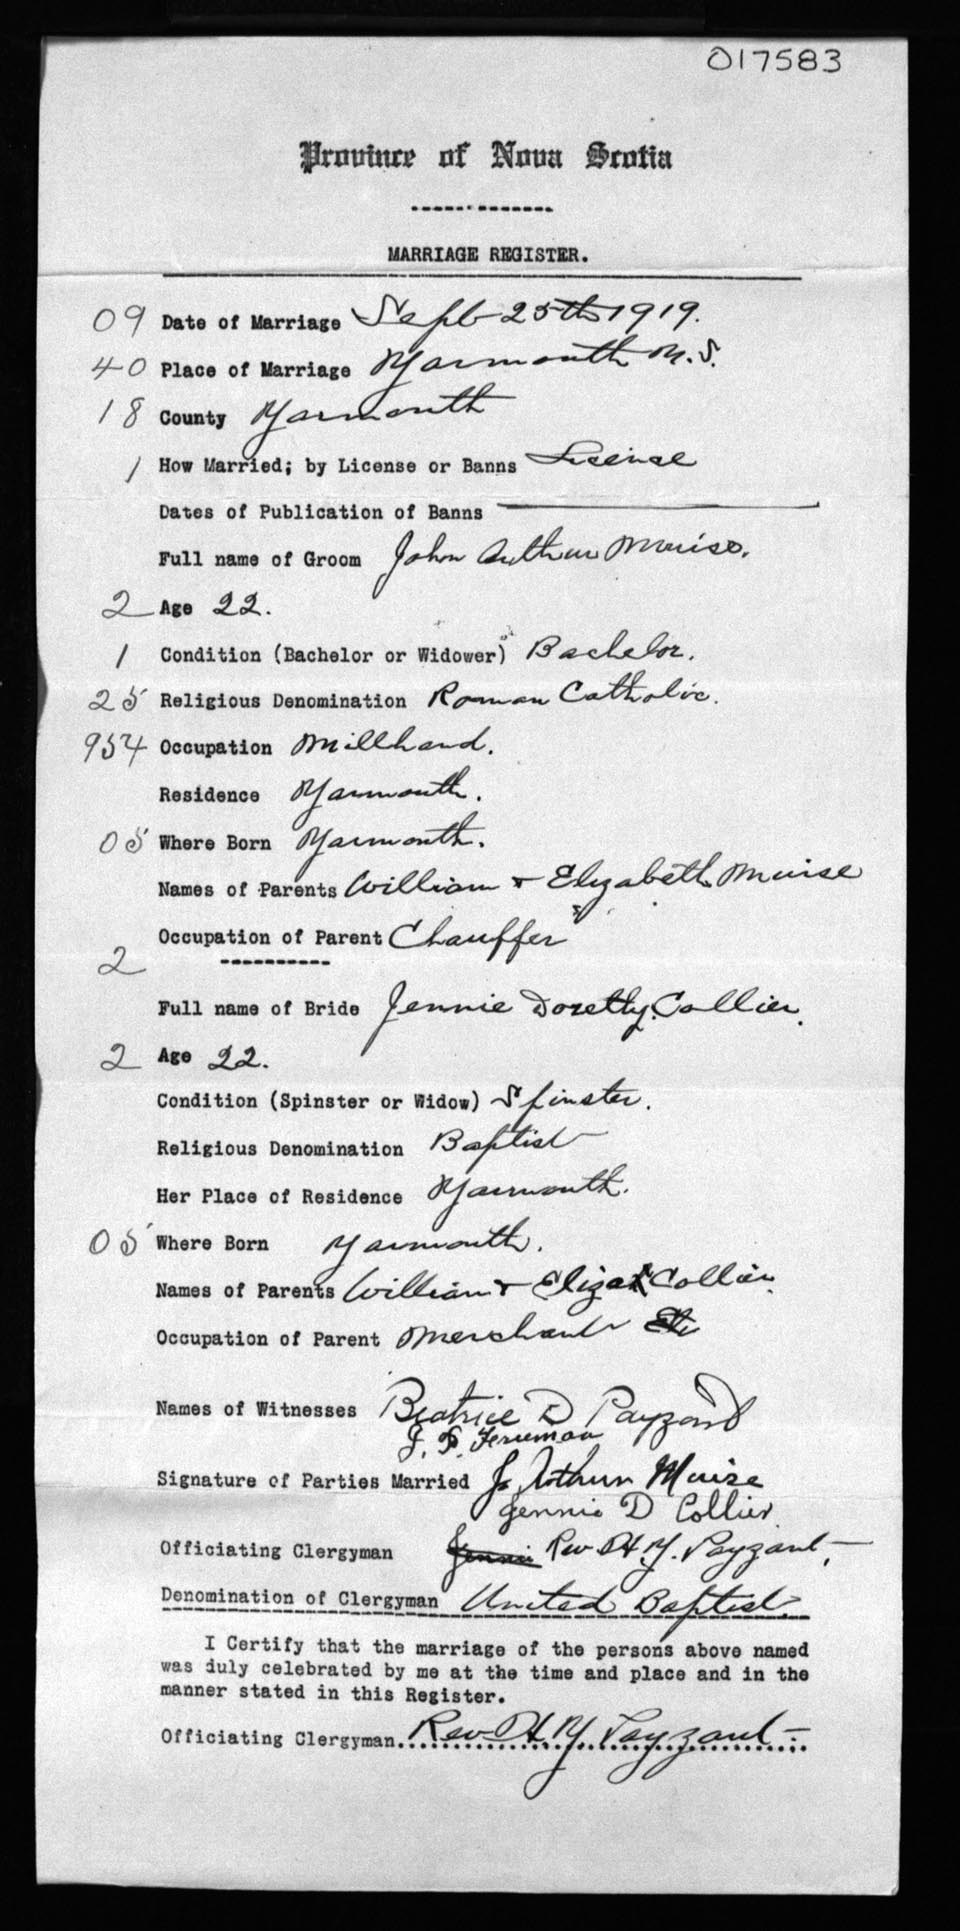 017583
Province of Nova Scotia
MARRIAGE REGISTER.
09 Date of Marriage Sept 25th 1919.
40 Place of Marriage Yarmouth N.S.
18 County Yarmouth
1 How Married; by License or Banns License
Dates of Publication of Banns
Full name of Groom John Arthur Muise.
2 Age 22.
1 Condition (Bachelor or Widower) Bachelor.
25 Religious Denomination Roman Catholic.
954 Occupation Millhand.
Residence Yarmouth.
05 Where Born Yarmouth.
Names of Parents William + Elizabeth Muise
Occupation of Parent Chauffer
2
Full name of Bride Jennie Doretty Collier.
2 Age 22.
Condition (Spinster or Widow) Spinster.
Religious Denomination Baptist
Her Place of Residence Yarmouth.
05 Where Born Yarmouth.
Names of Parents William + Eliza Collier
Occupation of Parent Merchant
Names of Witnesses Beatrice D Payzant
J. F. Freeman
Signature of Parties Married J Arthur Muise
Jennie D Collier
Officiating Clergyman Jennie Rev H. Y. Payzant
Denomination of Clergyman United Baptist
I Certify that the marriage of the persons above named
was duly celebrated by me at the time and place and in the
manner stated in this Register.
Officiating Clergyman Rev H. Y. Payzant